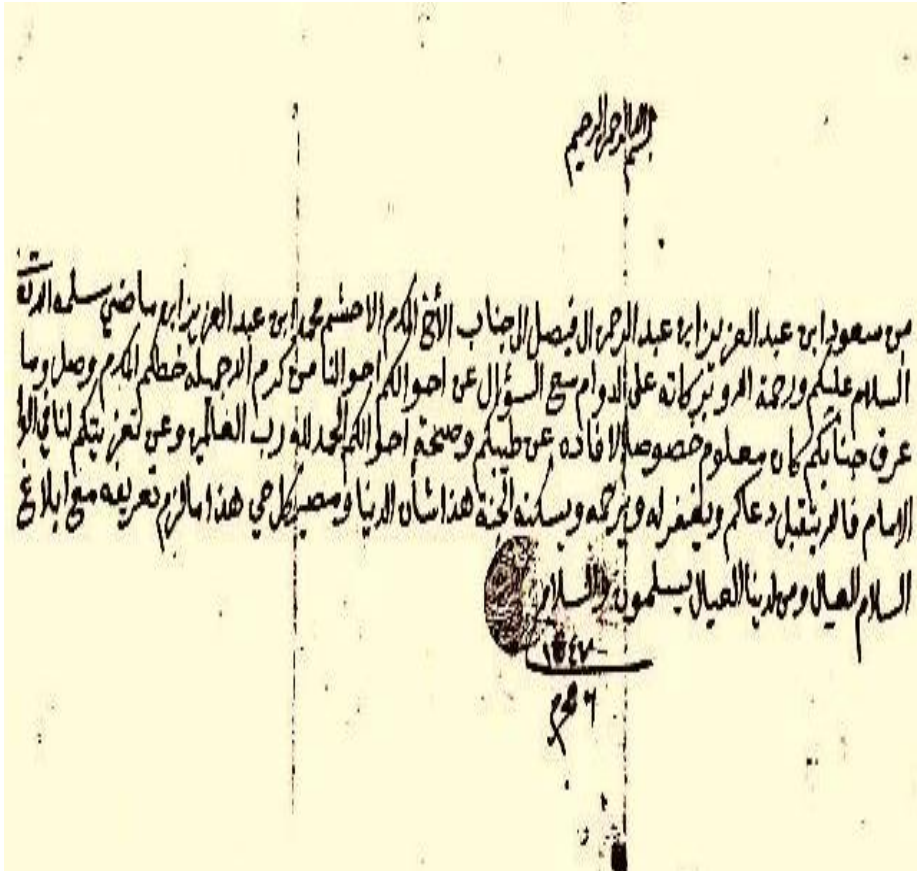 بسم الله الرحمن الرحيم
من سعود ابن عبد العزيز ابن عبد الرحمن ال فيصل الى جناب الأخ المكرم الاحشم محمد ابن عبد العزيز ابن ماضي سلمه الله تعالى
السلام عليكم ورحمة الله وبركاته على الدوام مع السؤال عن احوالكم احوالنا من كرم الله جميله خطكم المكرم وصل وما
عرف جنابكم كان معلوم خصوصا الافاده عن طيبكم وصحة احوالكم الحمد لله رب العالمين وعن تعزيتكم لنا في
الامام فالله يتقبل دعاكم ويغفر له ويرحمه ويسكنه الجنة هذا شأن الدنيا ومصير كل حي هذا مالزم تعريفه مع ابلاغ
السلام العيال ومن لدينا العيال يسلمون والسلام
١٣٤٧
٦ محرم